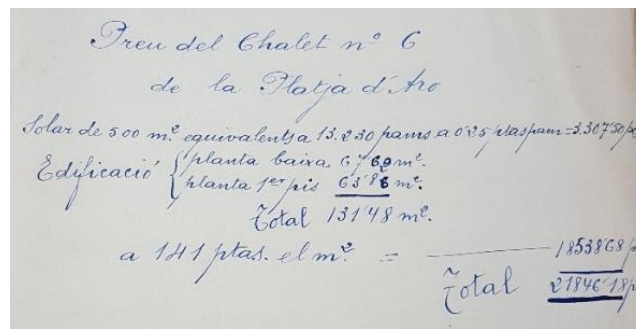 Preu del Chalet nº 6
de la Platja d'Aro
Solar de 500 m². equivalents a 13.230 pams a 0'25 ptas pam = 3.307'50 p
Edificació { planta baixa 67'62 m².
planta 1er pis 63'86 m².
Total 131'48 m².
a 141 ptas. el m². = 18538'68 p
Total 21846'18 p